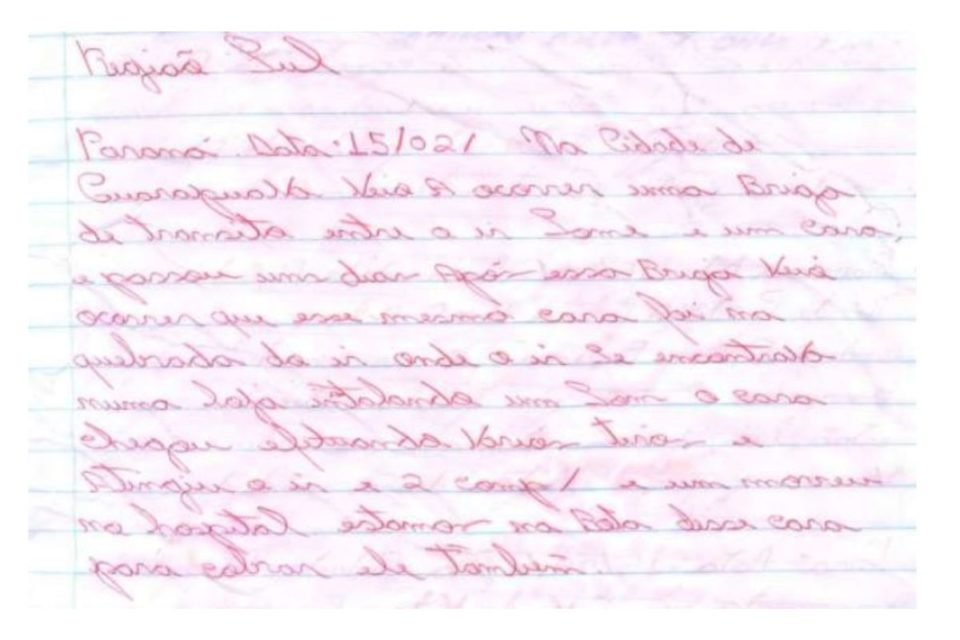 Regioã Sul
Paraná. Data: 15/021 Na Cidade de
veio A ocorrer uma Briga
de transito entre o ir e um cara,
e passou uns dias Após essa Briga Veio
ocorrer que esse mesmo cara foi na
quebrada do ir onde o ir se encontrava
numa loja um Som o cara
chegou efetuando Varios tiros e
Atingiu o ir e 2 comp/ e um morreu
no hospital estamos na Bota desse cara
para cobrar ele também.